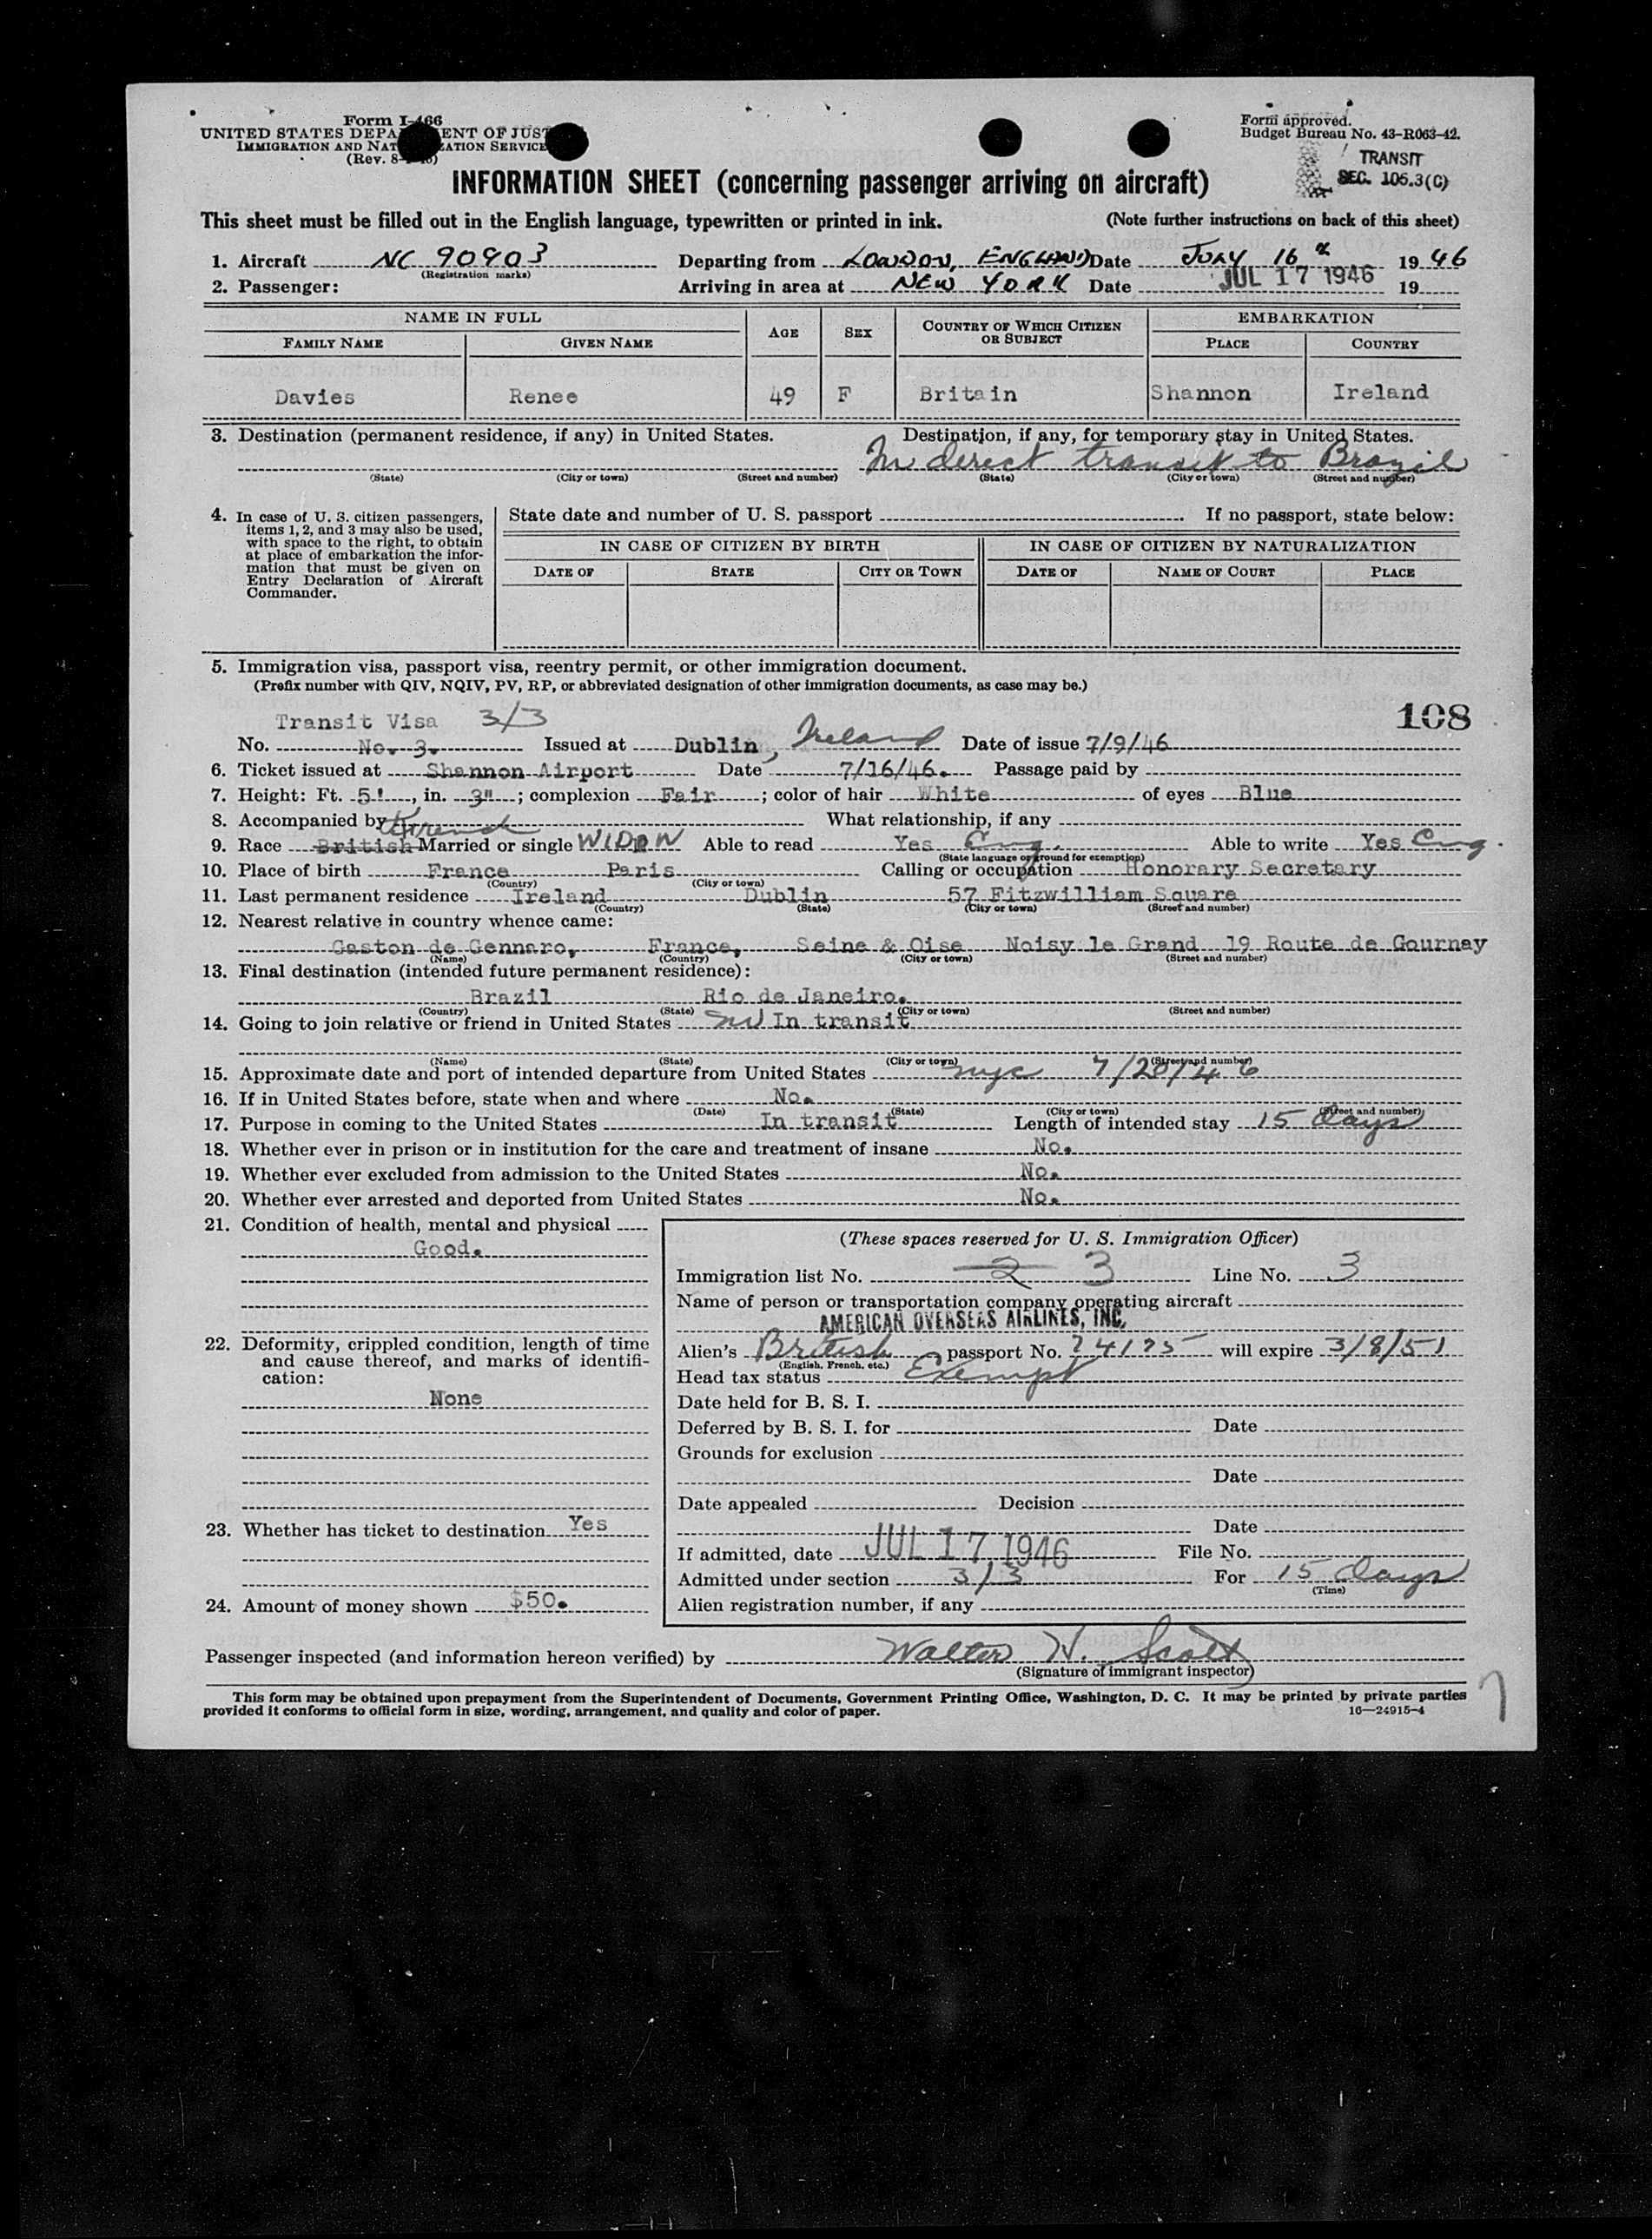 Form I-466
UNITED STATES DEPA ENT OF JUST
IMMIGRATION AND NAT ZATION SERVICE
(Rev. 8-
Form approved.
Budget Bureau No. 43-R063-42.
TRANSIT
SEC. 106.3(C)
INFORMATION SHEET (concerning passenger arriving on aircraft)
This sheet must be filled out in the English language, typewritten or printed in ink. (Note further instructions on back of this sheet)
1. Aircraft NC 90903 Departing from LONDON, ENGLAND Date JULY 16 19 46
(Registration marks)
2. Passenger: Arriving in area at NEW YORK Date JUL 17 1946 19
NAME IN FULL AGE SEX COUNTRY OF WHICH CITIZEN OR SUBJECT EMBARKATION
FAMILY NAME GIVEN NAME PLACE COUNTRY
Davies Renee 49 F Britain Shannon Ireland
3. Destination (permanent residence, if any) in United States. Destination, if any, for temporary stay in United States.
In direct transit to Brazil
(State) (City or town) (Street and number) (State) (City or town) (Street and number)
4. In case of U. S. citizen passengers, items 1, 2, and 3 may also be used, with space to the right, to obtain at place of embarkation the information that must be given on Entry Declaration of Aircraft Commander.
State date and number of U. S. passport If no passport, state below:
IN CASE OF CITIZEN BY BIRTH IN CASE OF CITIZEN BY NATURALIZATION
DATE OF STATE CITY OR TOWN DATE OF NAME OF COURT PLACE
5. Immigration visa, passport visa, reentry permit, or other immigration document.
(Prefix number with QIV, NQIV, PV, RP, or abbreviated designation of other immigration documents, as case may be.)
Transit Visa 3/3 108
No. No. 3. Issued at Dublin, Ireland Date of issue 7/9/46
6. Ticket issued at Shannon Airport Date 7/16/46. Passage paid by
7. Height: Ft. 5', in. 3"; complexion Fair; color of hair White of eyes Blue
8. Accompanied by What relationship, if any
French
9. Race British Married or single WIDOW Able to read Yes Eng. Able to write Yes Eng.
(State language or ground for exemption)
10. Place of birth France Paris Calling or occupation Honorary Secretary
(Country) (City or town)
11. Last permanent residence Ireland Dublin 57 Fitzwilliam Square
(Country) (State) (City or town) (Street and number)
12. Nearest relative in country whence came:
Gaston de Gennaro, France, Seine & Oise Noisy le Grand 19 Route de Gournay
(Name) (Country) (City or town) (Street and number)
13. Final destination (intended future permanent residence):
Brazil Rio de Janeiro.
(Country) (State) (City or town) (Street and number)
14. Going to join relative or friend in United States In transit
(Name) (State) (City or town) (Street and number)
15. Approximate date and port of intended departure from United States nyc 7/20/46
16. If in United States before, state when and where No.
(Date) (State) (City or town) (Street and number)
17. Purpose in coming to the United States In transit Length of intended stay 15 days
18. Whether ever in prison or in institution for the care and treatment of insane No.
19. Whether ever excluded from admission to the United States No.
20. Whether ever arrested and deported from United States No.
21. Condition of health, mental and physical
Good.
22. Deformity, crippled condition, length of time and cause thereof, and marks of identification:
None
23. Whether has ticket to destination Yes
24. Amount of money shown $50.
(These spaces reserved for U. S. Immigration Officer)
Immigration list No. 2 3 Line No. 3
Name of person or transportation company operating aircraft
AMERICAN OVERSEAS AIRLINES, INC.
Alien's British passport No. 74175 will expire 3/8/51
(English, French, etc.)
Head tax status Exempt
Date held for B. S. I.
Deferred by B. S. I. for Date
Grounds for exclusion
Date
Date appealed Decision
Date
If admitted, date JUL 17 1946 File No.
Admitted under section 3/3 For 15 days
(Time)
Alien registration number, if any
Passenger inspected (and information hereon verified) by Walter W. Scott
(Signature of immigrant inspector)
This form may be obtained upon prepayment from the Superintendent of Documents, Government Printing Office, Washington, D. C. It may be printed by private parties
provided it conforms to official form in size, wording, arrangement, and quality and color of paper. 16—24915-4